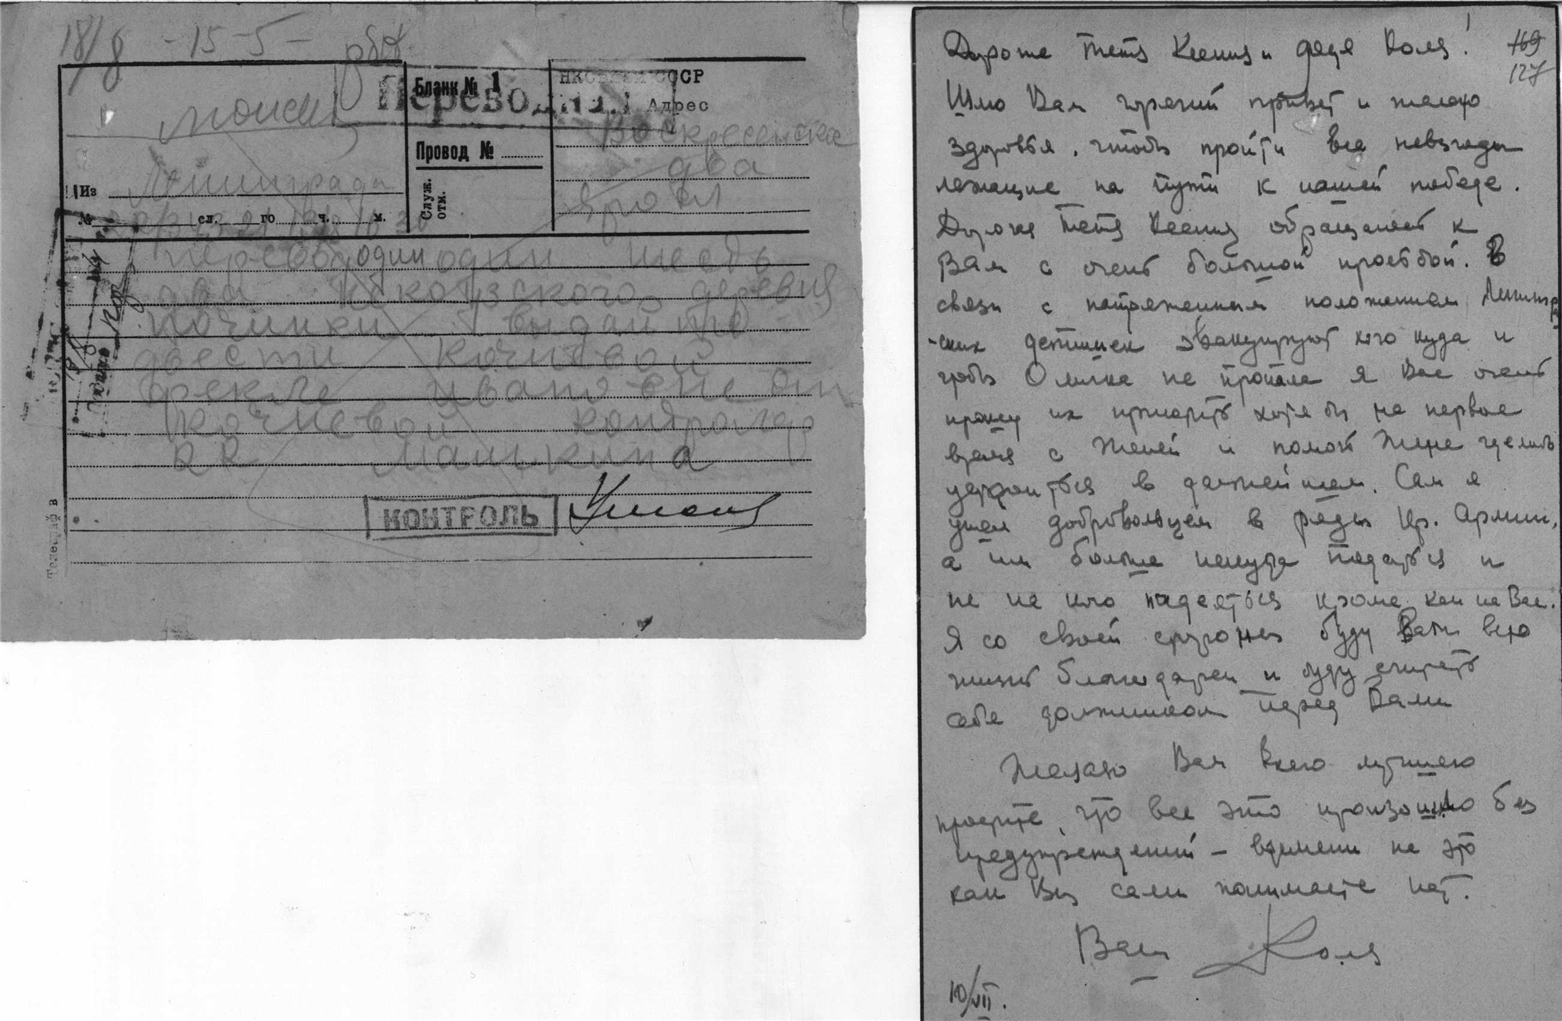 18/8 -15-5-
Бланк № 1
НКСвязи СССР
Переводная
Адрес
Воскресенское
Провод №
два
Из Ленинграда
Служ. отм.
№ сл. го ч. м.
перевод один один шесть
два деревня
починки выдайте
двести Кочневой
Фекле Ивановне от
Кочневой контролер
Машкина
КОНТРОЛЬ
Телеграф в
169
127
Дорогие тетя Ксения и дядя Коля!
Шлю Вам горячий привет и желаю
здоровья, чтобы пройти все невзгоды
лежащие на пути к нашей победе.
Дорогая тетя Ксения обращаюсь к
Вам с очень большой просьбой. В
связи с напряженным положением Ленингр
-ских детишек эвакуируют кого куда и
чтобы Олечка не пропала я Вас очень
прошу их приютить хотя бы на первое
время с Женей и помочь Жене сделать
устроиться в дальнейшем. Сам я
ушел добровольцем в ряды Кр. Армии,
а им больше некуда податься и
не на кого надеяться кроме как на Вас.
Я со своей стороны буду Вам всю
жизнь благодарен и буду считать
себя должником перед Вами
Желаю Вам всего лучшего
простите, что все это произошло без
предупреждений – времени на это
как Вы сами понимаете нет.
Ваш Коля
10/VII.